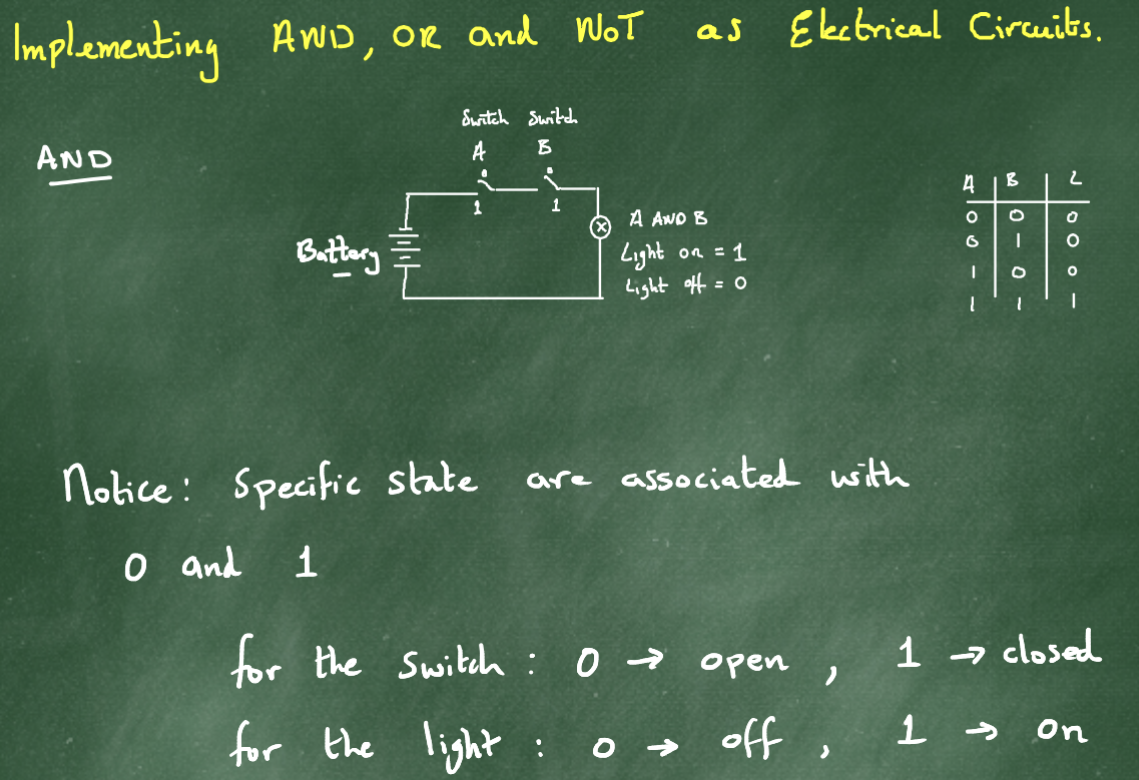 Implementing AND, OR and NOT as Electrical Circuits.
AND
Switch Switch
A B
1 1
Battery
A AND B
Light on = 1
Light off = 0
A B L
0 0 0
0 1 0
1 0 0
1 1 1
Notice: Specific state are associated with
0 and 1
for the switch : 0 → open , 1 → closed
for the light : 0 → off , 1 → on